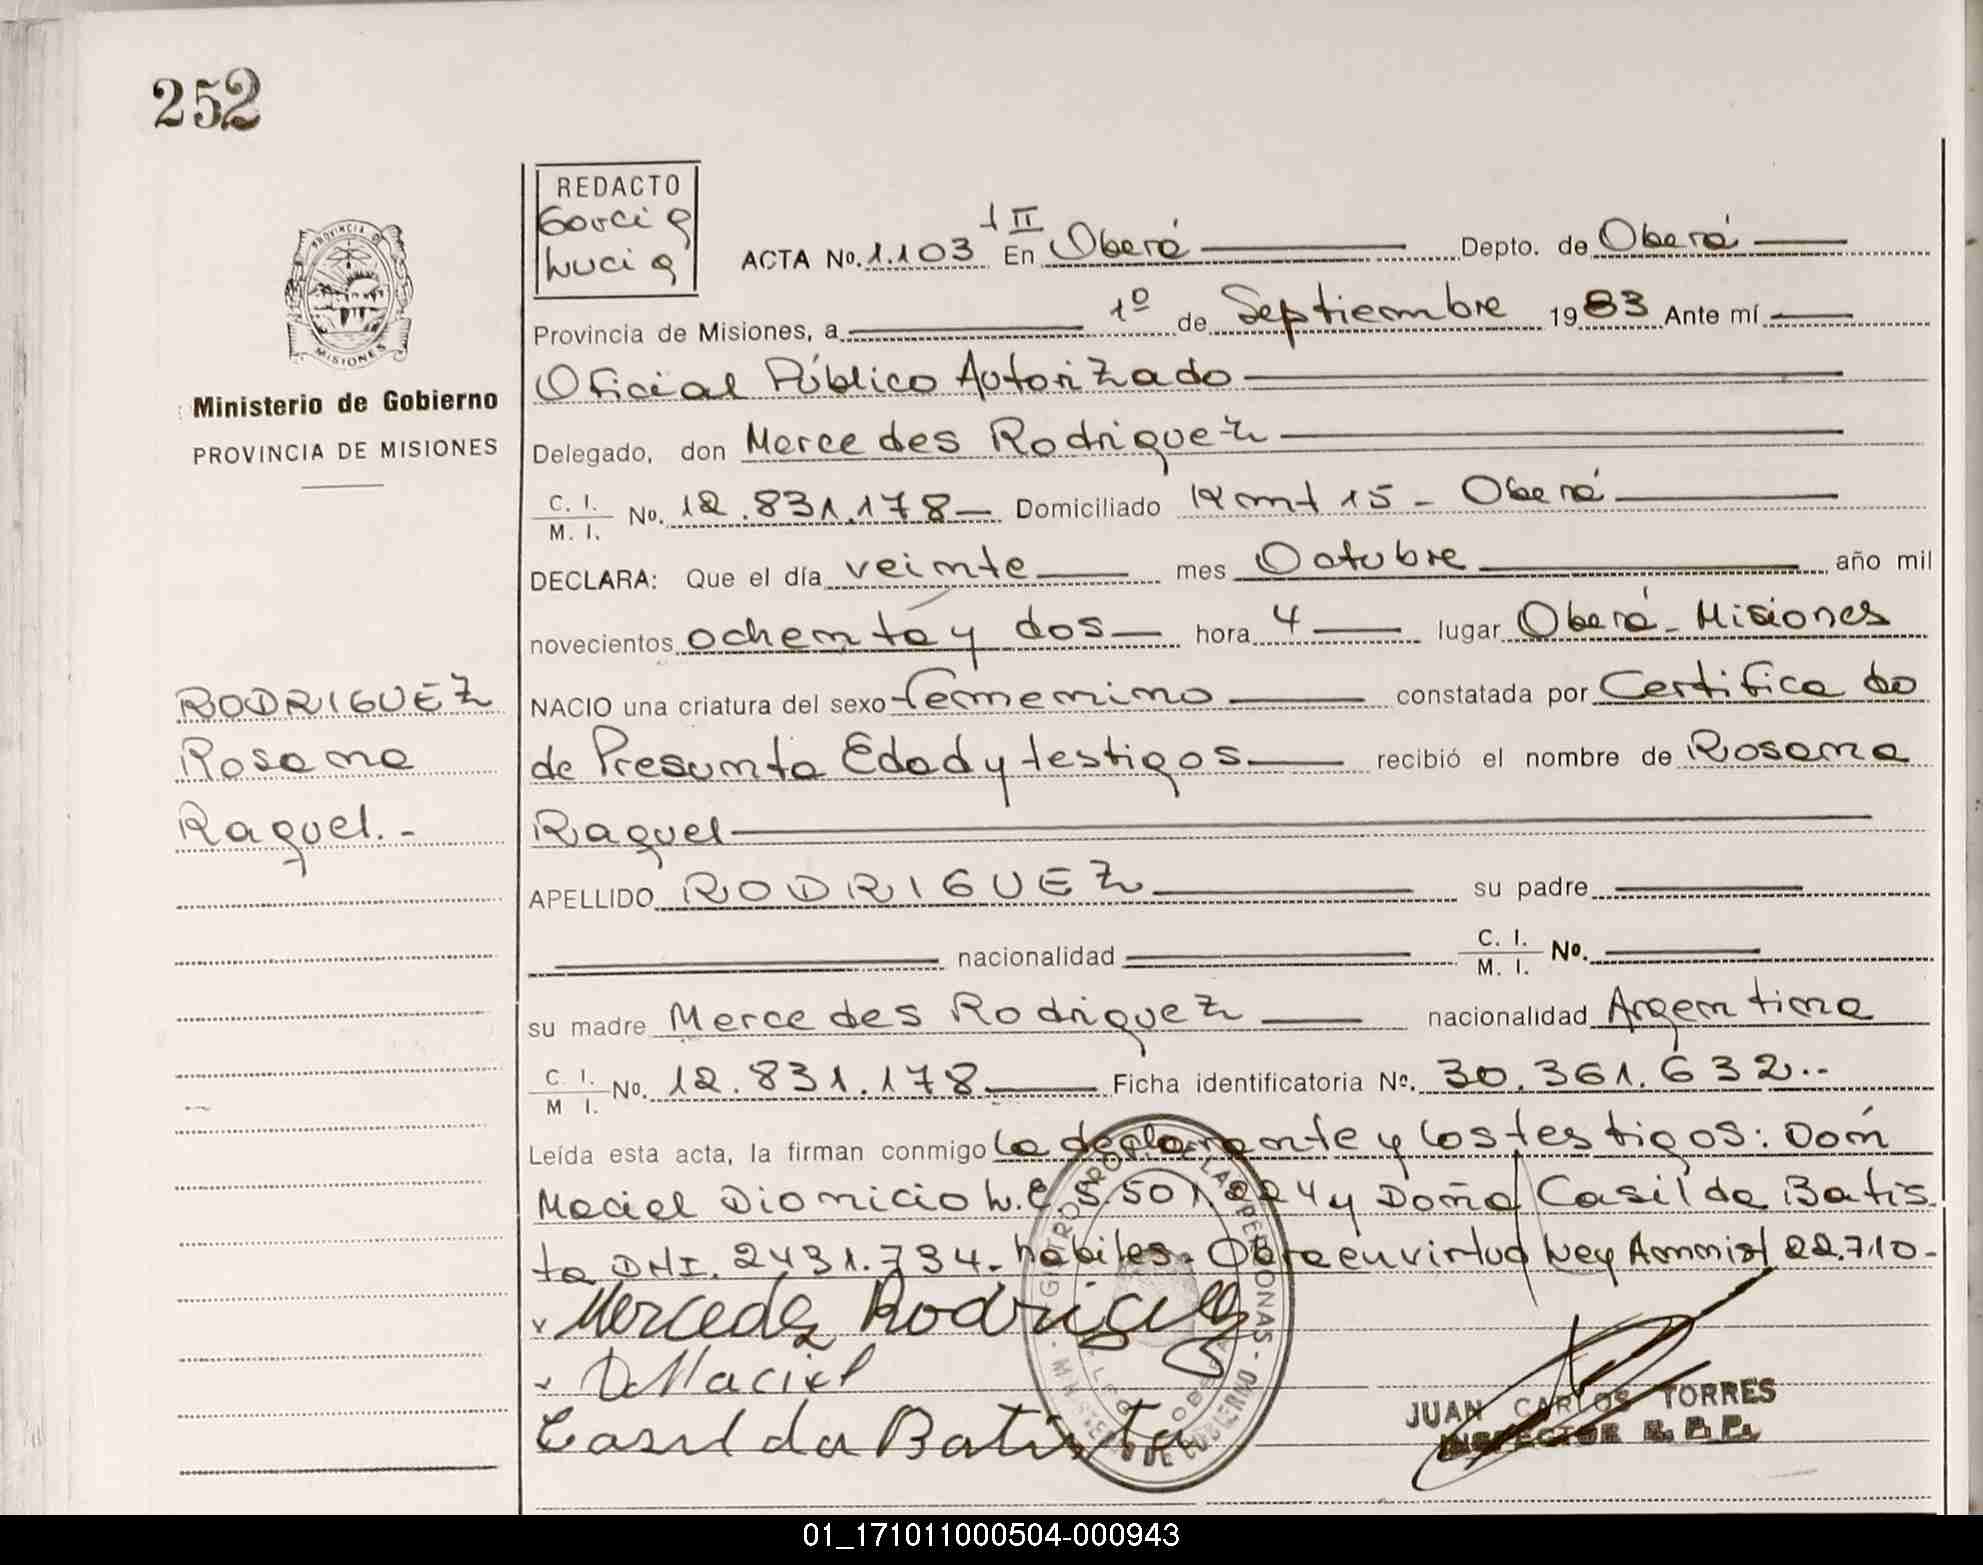 252
REDACTO
Garcia
Lucia
ACTA No. 1.103 tII En Oberá Depto. de Oberá
Provincia de Misiones, a 1º de Septiembre 1983 Ante mí
Oficial Público Autorizado
Delegado, don Mercedes Rodriguez
C. I. / M. I. No. 12.831.178 Domiciliado Kmt 15 - Oberá
DECLARA: Que el día veinte mes Octubre año mil
novecientos ochenta y dos hora 4 lugar Oberá - Misiones
NACIO una criatura del sexo femenino constatada por Certificado
de Presunta Edad y testigos recibió el nombre de Rosana
Raquel
APELLIDO RODRIGUEZ su padre
nacionalidad C. I. / M. I. No.
su madre Mercedes Rodriguez nacionalidad Argentina
C. I. / M I. No. 12.831.178 Ficha identificatoria No. 30.361.632..
Leída esta acta, la firman conmigo la declarante y los testigos: Don
Maciel Dionicio L.E. 5.501.224 y Doña Casilda Batis
ta DNI. 2431.734 - habiles. Obra en virtud Ley Amnist 22.710 -
Mercedes Rodriguez
D Maciel
Casilda Batista
JUAN CARLOS TORRES
INSPECTOR R. P. P.
REGISTRO PROV. DE LAS PERSONAS - MINISTERIO DE GOBIERNO -
PROVINCIA DE
MISIONES
Ministerio de Gobierno
PROVINCIA DE MISIONES
RODRIGUEZ
Rosana
Raquel. -
01_171011000504-000943